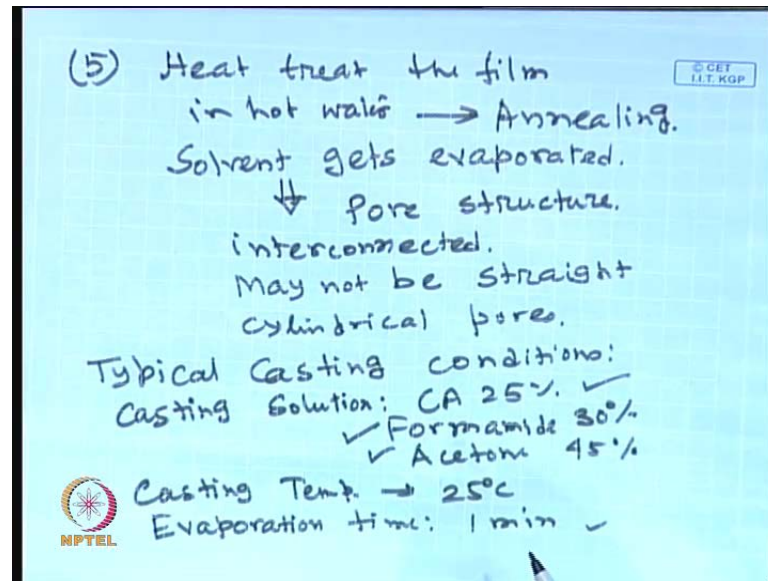 (5) Heat treat the film
© CET
I.I.T. KGP
in hot water → Annealing.
Solvent gets evaporated.
⇓ Pore structure.
interconnected.
May not be straight
cylindrical pores.
Typical Casting conditions:
Casting Solution: CA 25% ✓
✓ Formamide 30%
✓ Acetone 45%
Casting Temp. → 25°C
Evaporation time: 1 min ✓
NPTEL